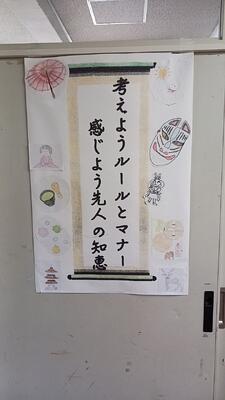 考えようルールとマナー
感じよう先人の知恵